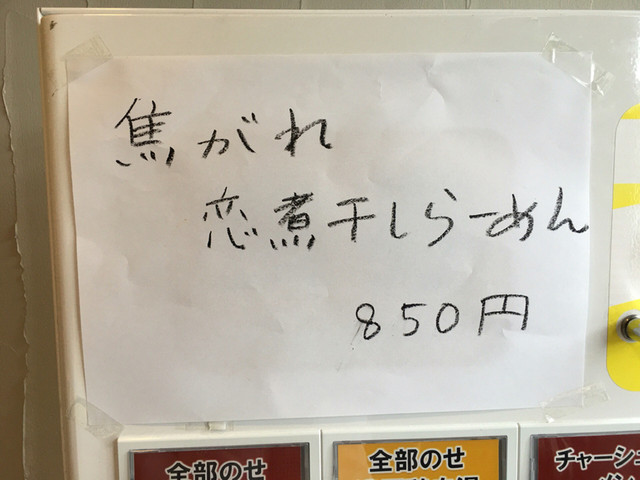 焦がれ
恋煮干しらーめん
850円
全部のせ
全部のせ
チャーシュ